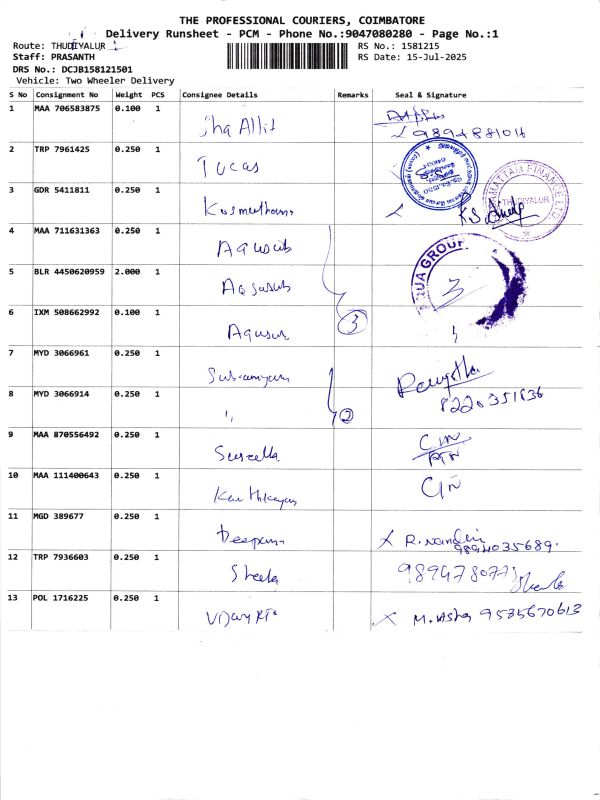 THE PROFESSIONAL COURIERS, COIMBATORE
Delivery Runsheet - PCM - Phone No.:9047080280 - Page No.:1
Route: THUDIYALUR
RS No.: 1581215
Staff: PRASANTH
RS Date: 15-Jul-2025
DRS No.: DCJB158121501
Vehicle: Two Wheeler Delivery
S No Consignment No Weight PCS Consignee Details Remarks Seal & Signature
1 MAA 706583875 0.100 1
2 TRP 7961425 0.250 1 Tucas
3 GDR 5411811 0.250 1
THUDIYALUR
4 MAA 711631363 0.250 1
AQUA GROUP
3
5 BLR 4450620959 2.000 1
6 IXM 508662992 0.100 1 3
7 MYD 3066961 0.250 1
8 MYD 3066914 0.250 1 " 2 8220351636
9 MAA 870556492 0.250 1 Suseella
10 MAA 111400643 0.250 1 Karthikeyan
11 MGD 389677 0.250 1 Deepam R. Nandini
9894035689.
12 TRP 7936603 0.250 1 Sheela
13 POL 1716225 0.250 1 M. Usha 9535670613